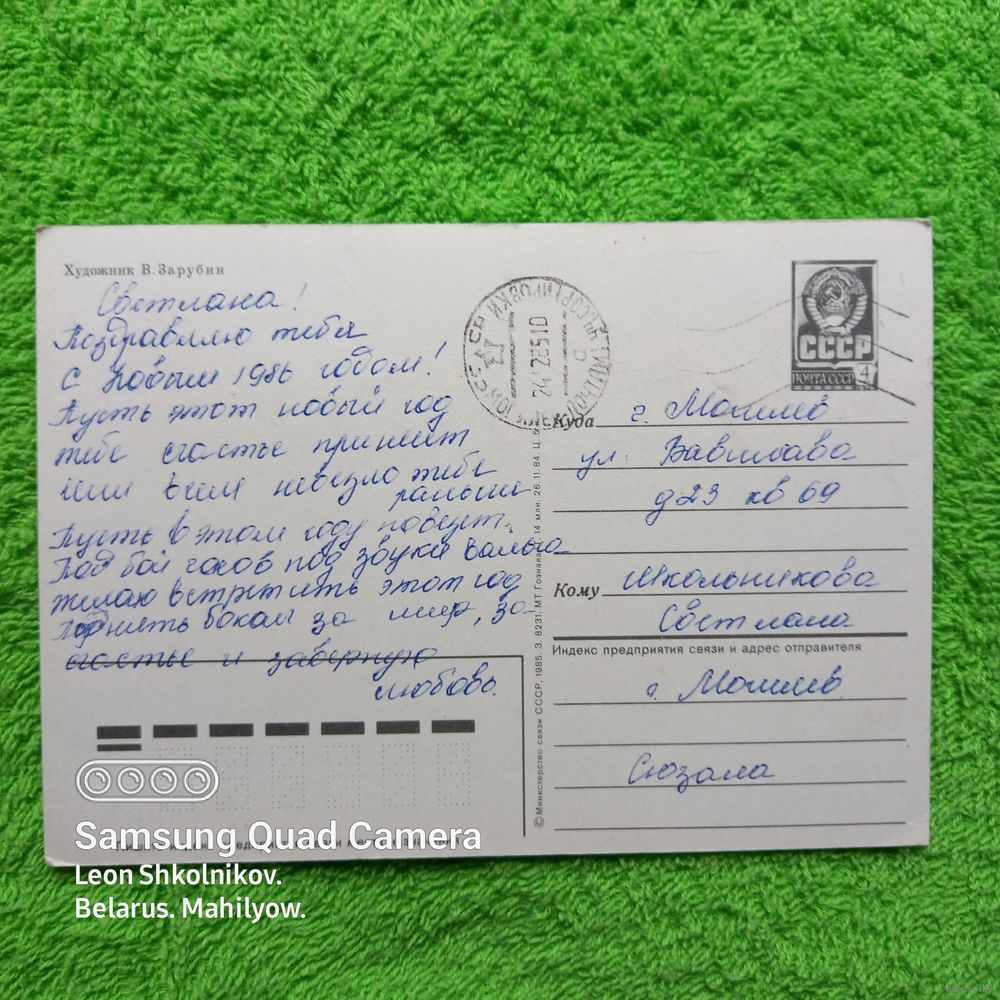 Художник В. Зарубин
Светлана!
Поздравляю тебя
с Новым 1986 годом!
Пусть этот новый год
тебе счастье принесет
если в чем невезло тебе
раньше
Пусть в этом году повезет.
Под бой часов под звуки вальса
желаю встретить этот год
поднять бокал за мир, за
счастье и за верную
любовь.
СССР
ПОЧТА СССР 4
Куда г. Могилев
ул. Вавилова
д 23 кв 69
Кому Школьникова
Светлана
Индекс предприятия связи и адрес отправителя
г. Могилев
© Министерство связи СССР. 1985. З. 8231. МТ Гознака. 14 млн. 26.11.84. Ц. 5
Samsung Quad Camera
Leon Shkolnikov.
Belarus. Mahilyow.